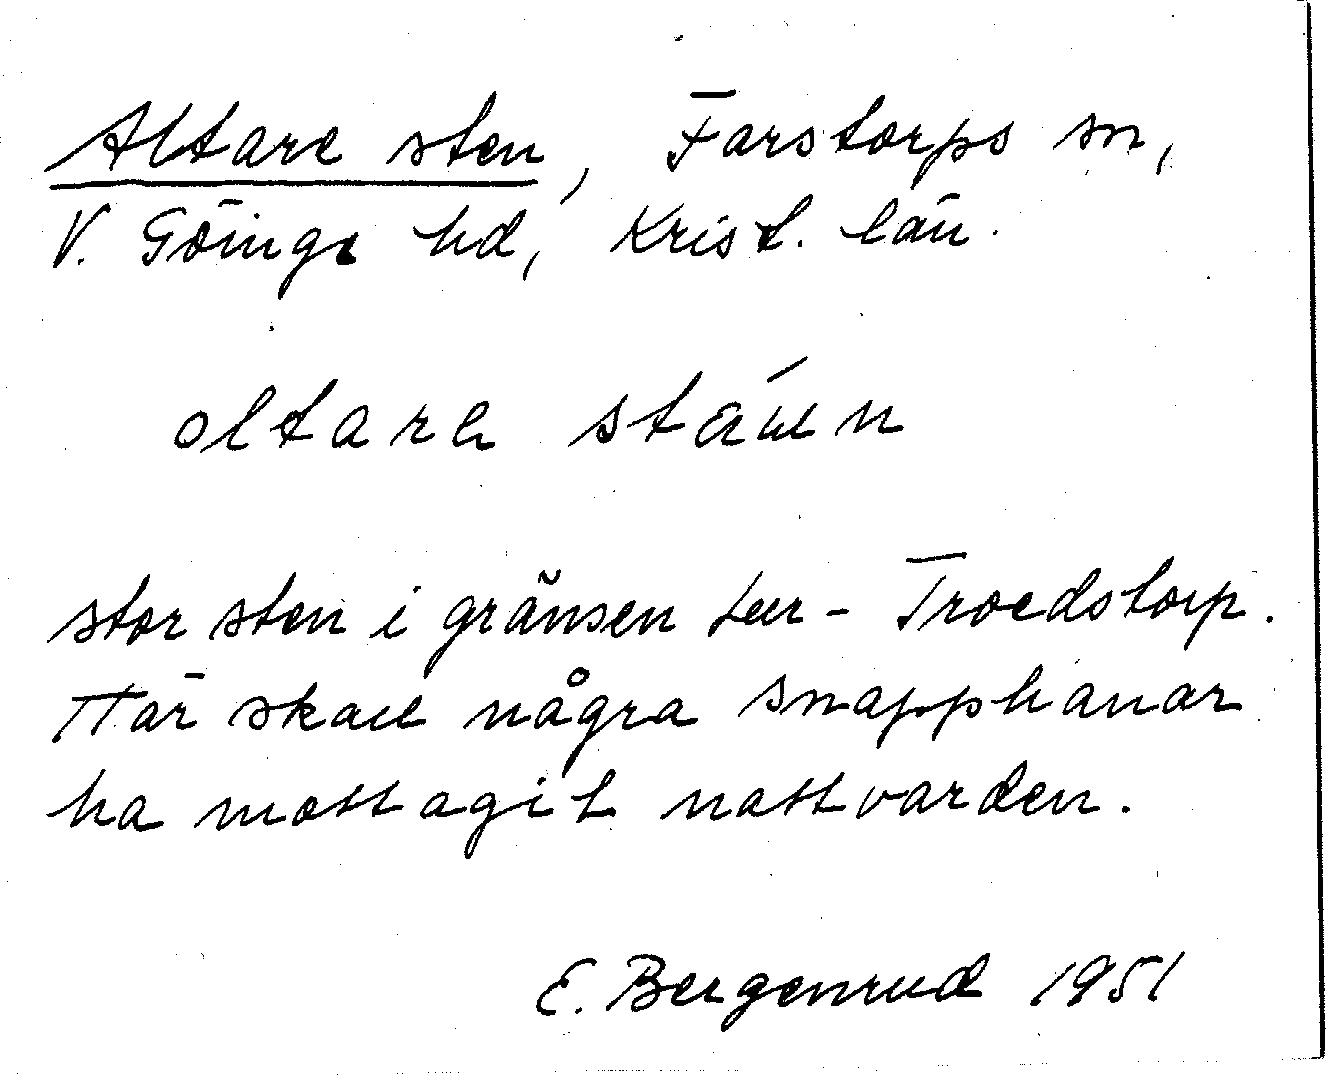 Altare sten, Farstorps sn,
V. Göinge hd, Krist. län.
altare
stor sten i gränsen Lur - Troedstorp.
Här skall några snapphanar
ha mottagit nattvarden.
E. Bergenrud 1951